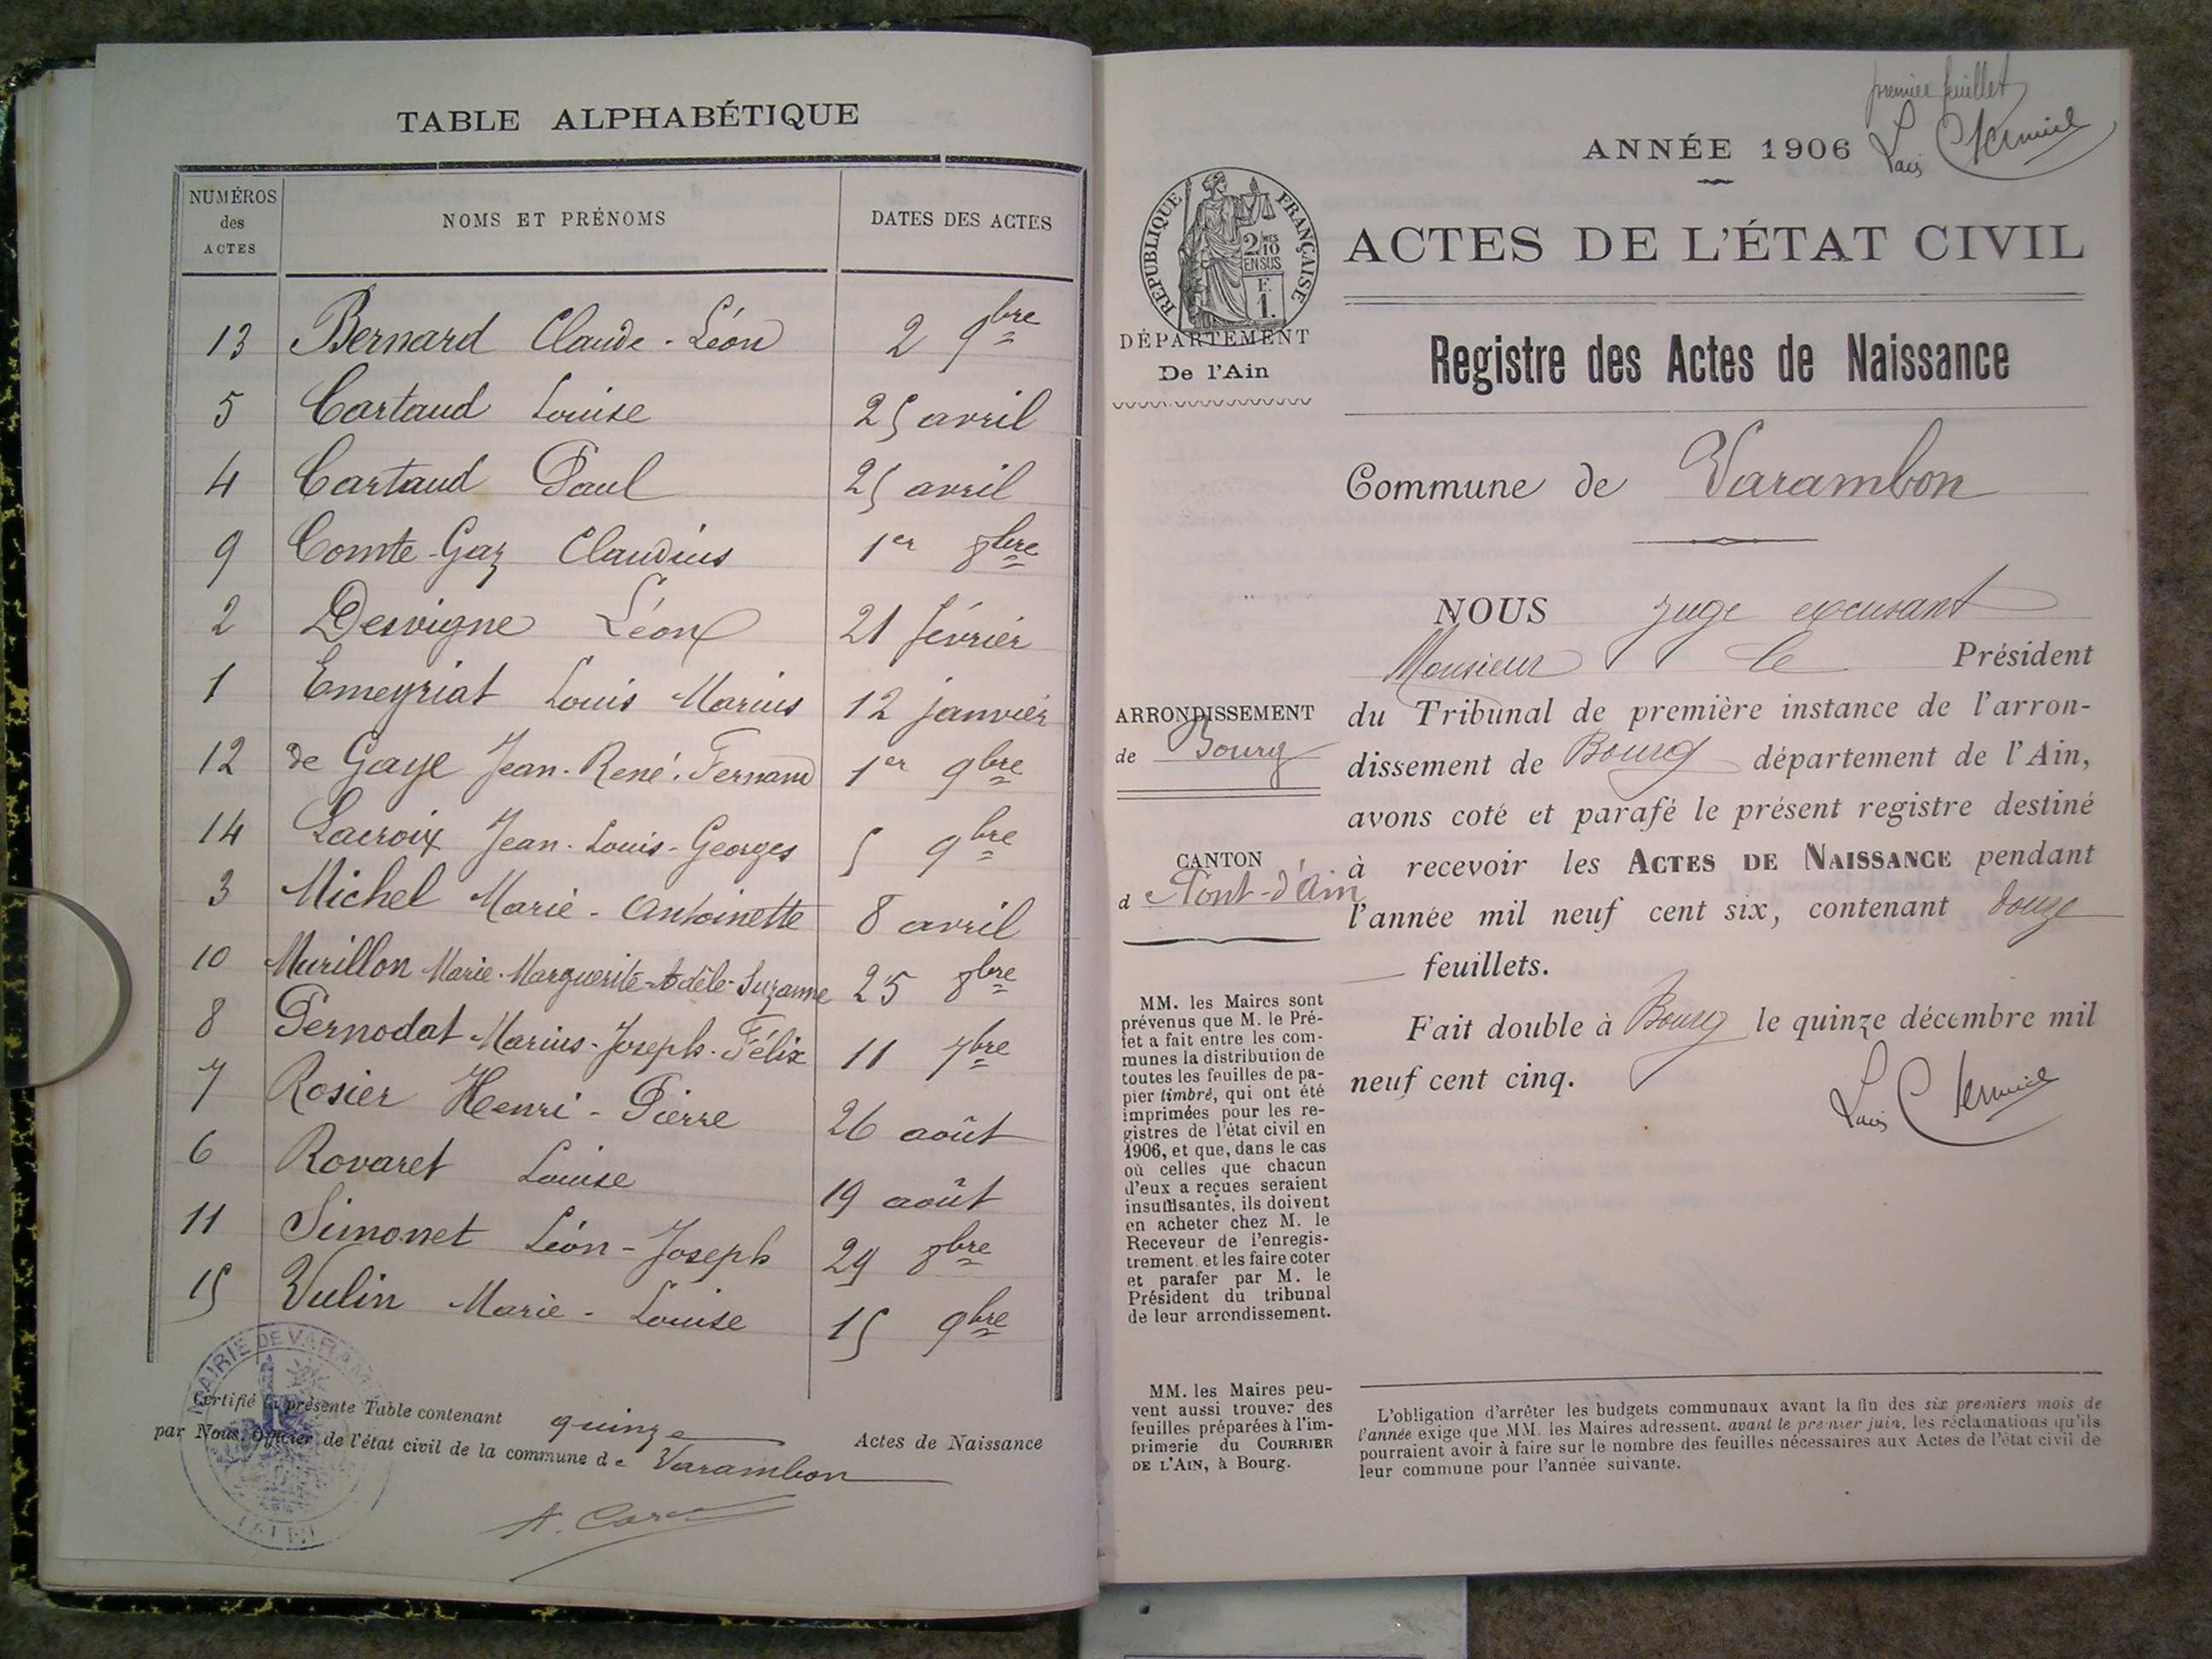 TABLE ALPHABÉTIQUE
NUMÉROS des ACTES
NOMS ET PRÉNOMS
DATES DES ACTES
13 Bernard Claude-Léon 2 9bre
5 Cartaud Louise 25 avril
4 Cartaud Paul 25 avril
9 Comte-Gaz Claudius 1er 8bre
2 Desvigne Léon 21 février
1 Emeyriat Louis Marius 12 janvier
12 de Gaye Jean-René-Fernand 1er 9bre
14 Lacroix Jean-Louis-Georges 5 9bre
3 Michel Marie-Antoinette 8 avril
10 Murillon Marie-Marguerite-Adèle-Suzanne 25 8bre
8 Pernodat Marius-Joseph-Félix 11 7bre
7 Rosier Henri-Pierre 26 août
6 Rovaret Louise 19 août
11 Simonet Léon-Joseph 29 8bre
15 Vulin Marie-Louise 15 9bre
MAIRIE DE VARAM
Certifié la présente Table contenant quinze Actes de Naissance
par Nous, Officier de l'état civil de la commune de Varambon
premier feuillet
ANNÉE 1906
RÉPUBLIQUE FRANÇAISE
2/10 MES
EN SUS
F.
1.
ACTES DE L'ÉTAT CIVIL
DÉPARTEMENT
De l'Ain
Registre des Actes de Naissance
Commune de Varambon
NOUS juge excusant
Monsieur le Président
du Tribunal de première instance de l'arron-
dissement de Bourg département de l'Ain,
avons coté et parafé le présent registre destiné
à recevoir les ACTES DE NAISSANCE pendant
l'année mil neuf cent six, contenant douze
feuillets.
Fait double à Bourg le quinze décembre mil
neuf cent cinq.
ARRONDISSEMENT
de Bourg
CANTON
d Pont-d'Ain
MM. les Maires sont
prévenus que M. le Pré-
fet a fait entre les com-
munes la distribution de
toutes les feuilles de pa-
pier timbré, qui ont été
imprimées pour les re-
gistres de l'état civil en
1906, et que, dans le cas
où celles que chacun
d'eux a reçues seraient
insuffisantes, ils doivent
en acheter chez M. le
Receveur de l'enregis-
trement et les faire coter
et parafer par M. le
Président du tribunal
de leur arrondissement.
MM. les Maires peu-
vent aussi trouver des
feuilles préparées à l'im-
primerie du COURRIER
DE L'AIN, à Bourg.
L'obligation d'arrêter les budgets communaux avant la fin des six premiers mois de
l'année exige que MM. les Maires adressent, avant le premier juin, les réclamations qu'ils
pourraient avoir à faire sur le nombre des feuilles nécessaires aux Actes de l'état civil de
leur commune pour l'année suivante.